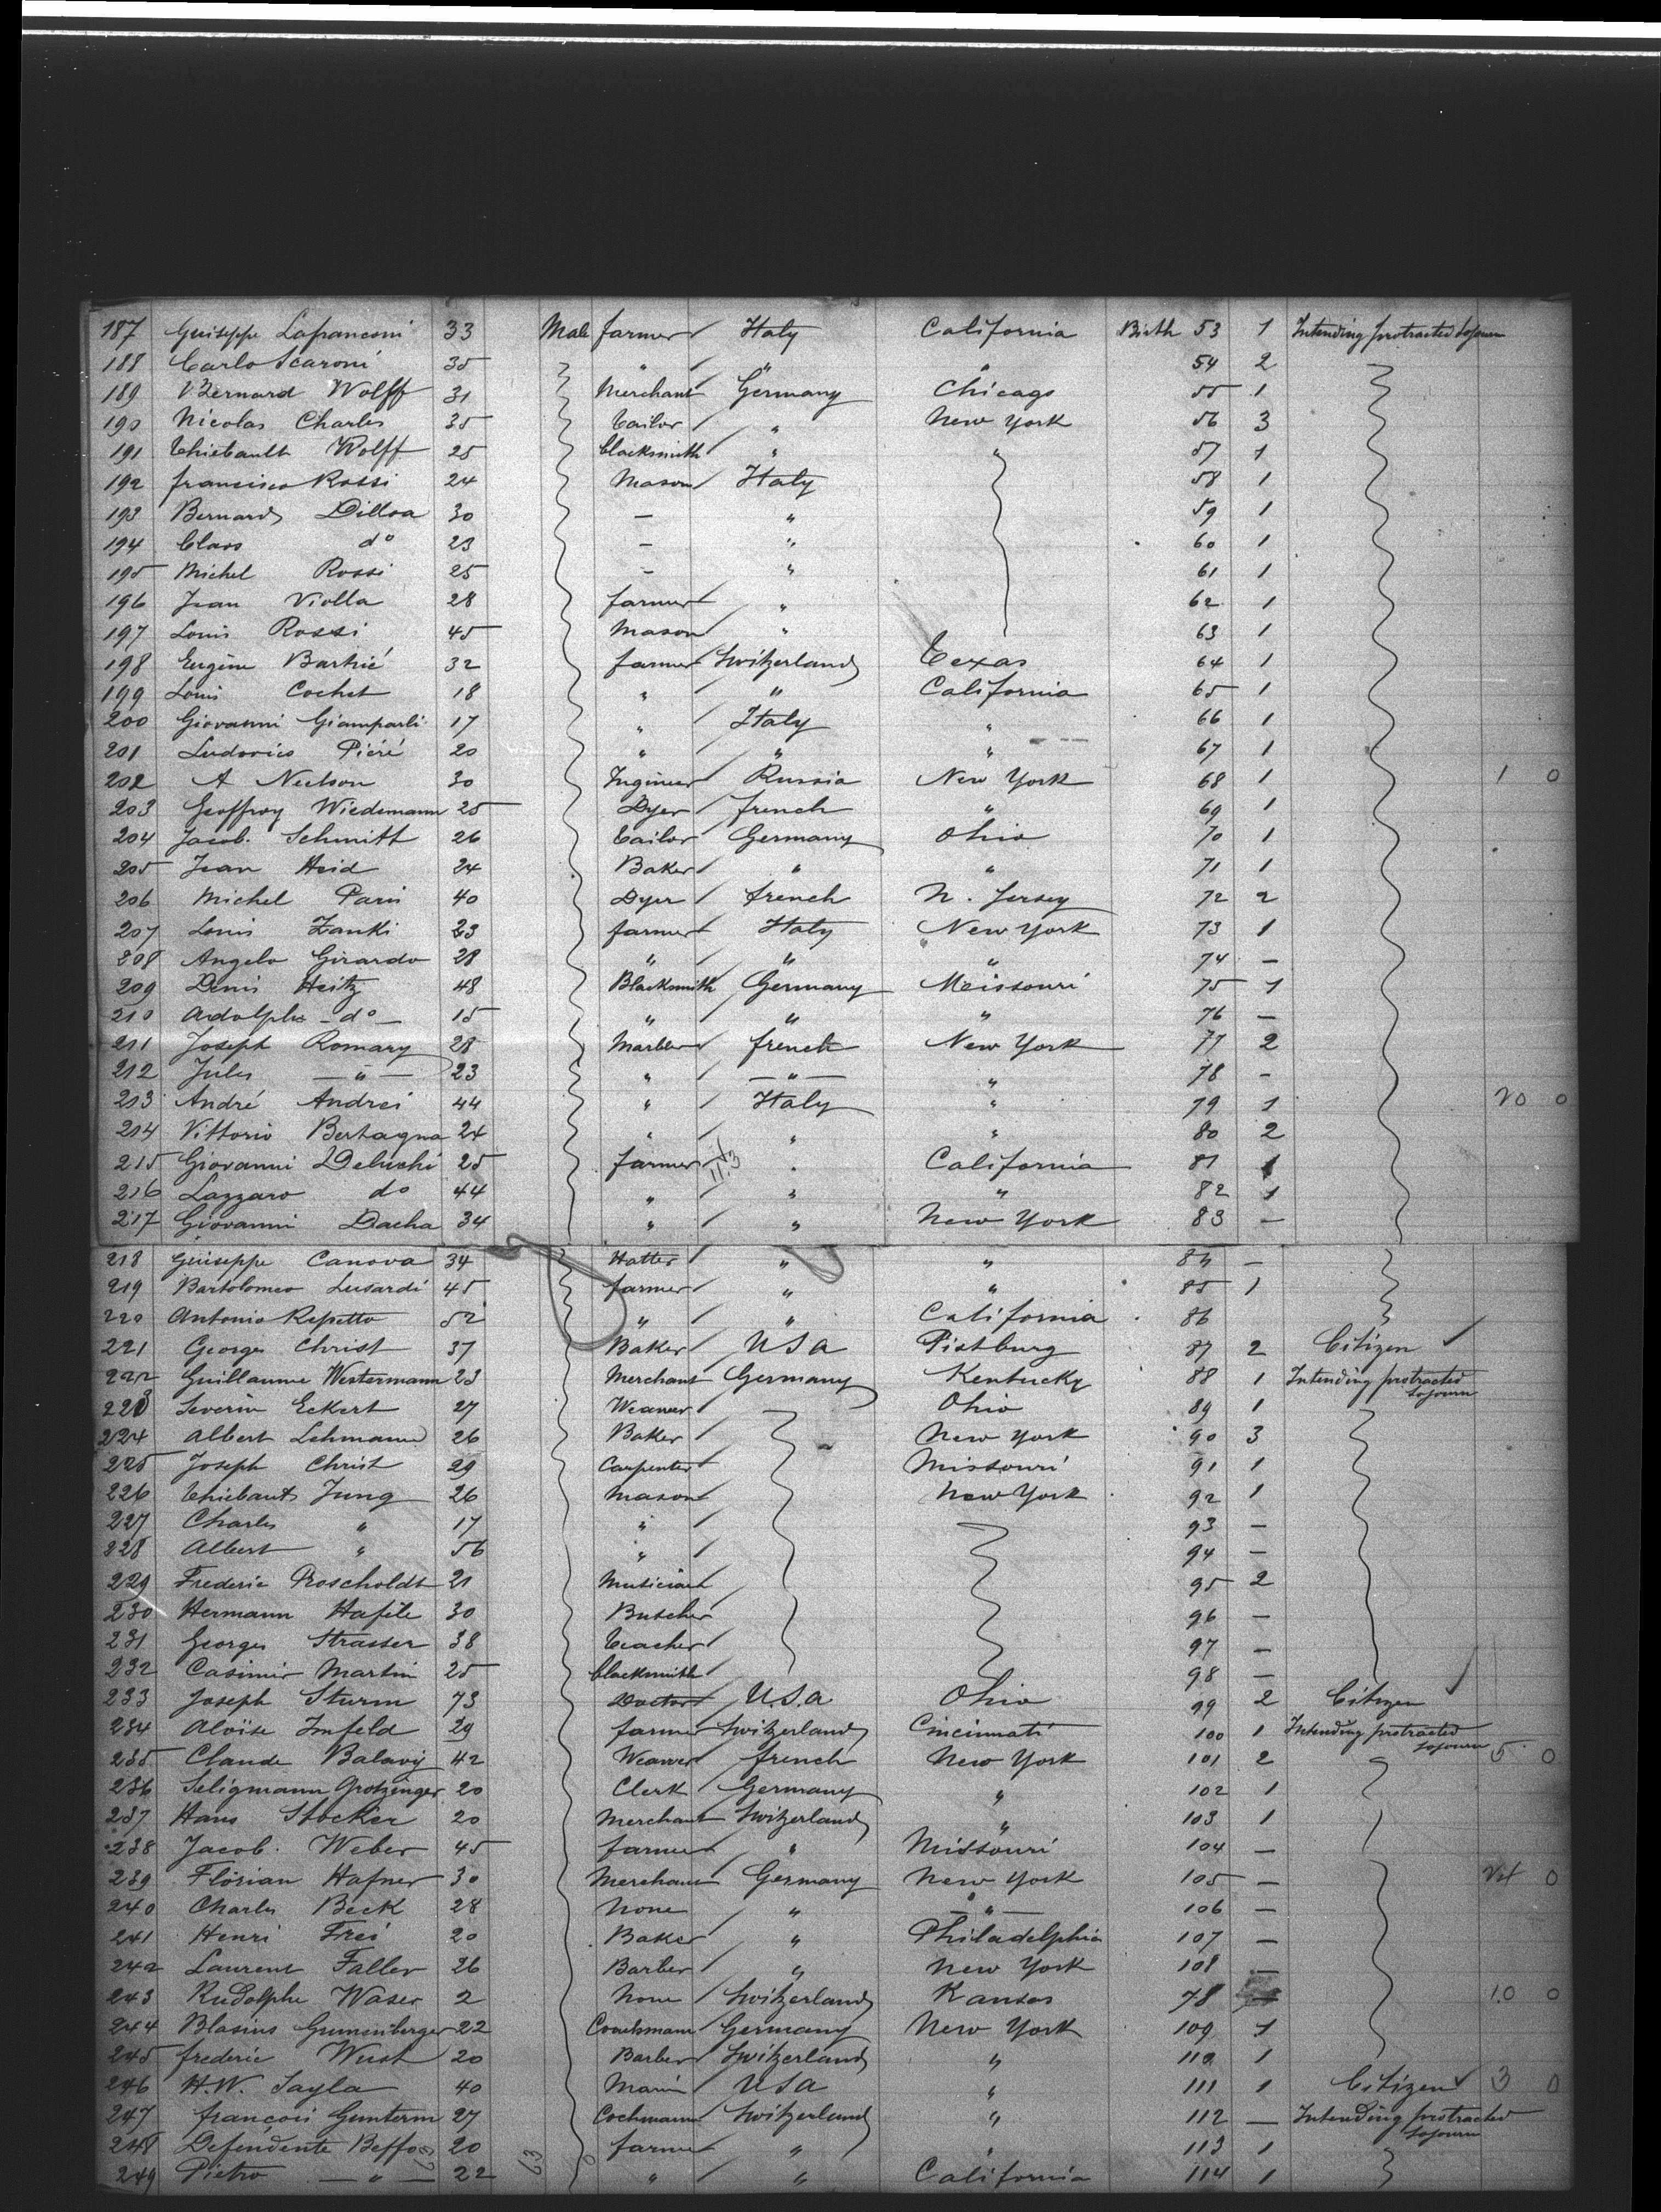 187 Guiseppe Lafranconi 33 Male farmer Italy California Birth 53 1 Intending protracted sojourn
188 Carlo Scaroni 35 " " " 54 2
189 Bernard Wolff 31 Merchant Germany Chicago 55 1
190 Nicolas Charles 35 Tailor " New York 56 3
191 Thiebault Wolff 25 blacksmith " " 57 1
192 francisco Rossi 24 Mason Italy 58 1
193 Bernard Dilloa 30 — " 59 1
194 Clars do 23 — " 60 1
195 Michel Rossi 25 — " 61 1
196 Jean Violla 28 farmer " 62 1
197 Louis Rossi 45 Mason " 63 1
198 Eugène Barthié 32 farmer Switzerland Texas 64 1
199 Louis Cochet 18 " " California 65 1
200 Giovanni Giamparli 17 " Italy " 66 1
201 Ludovico Piéré 20 " " " 67 1
202 A Neelson 30 Ingineer Russia New York 68 1 1 0
203 Geoffroy Wiedemann 25 Dyer french " 69 1
204 Jacob. Schmitt 26 Tailor Germany Ohio 70 1
205 Jean Heid 24 Baker " " 71 1
206 Michel Paris 40 Dyer french N. Jersey 72 2
207 Louis Zanki 23 farmer Italy New York 73 1
208 Angelo Girardo 28 " " " 74 —
209 Denis Heitz 48 Blacksmith Germany Meissouri 75 1
210 Adolphe — do — 15 " " " 76 —
211 Joseph Romary 28 Marbler french New York 77 2
212 Jules — " — 23 " — " — " 78 -
213 André Andrei 44 " Italy " 79 1 20 0
214 Vittorio Bertagna 24 " " " 80 2
215 Giovanni Deluchi 25 farmer 113 " California 81 1
216 Lazzaro do 44 " " " 82 1
217 Giovanni Dacha 34 " " New York 83 —
218 Guiseppe Canova 34 Hatter " " 84 —
219 Bartolomeo Lusardi 45 farmer " " 85 1
220 Antonio Repetto 52 " " California 86
221 Georges Christ 37 Baker USA Pistburg 87 2 Citizen
222 Guillaume Westermann 23 Merchant Germany Kentucky 88 1 Intending protracted sojourn
223 Severin Eckert 27 Weawer Ohio 89 1
224 Albert Lehmann 26 Baker New York 90 3
225 Joseph Christ 29 Carpenter Missouri 91 1
226 Thiebaut Jung 26 Mason New York 92 1
227 Charles " 17 " 93 —
228 Albert " 56 " 94 —
229 Frederic Proscholdt 21 Musician 95 2
230 Hermann Hafele 30 Butcher 96 —
231 Georges Strasser 38 Teacher 97 —
232 Casimir Martin 25 blacksmith 98 —
233 Joseph Sturm 73 Doctor U.S.A Ohio 99 2 Citizen
234 Aloïse Imfeld 29 farmer Switzerland Cincinnati 100 1 Intending protracted sojourn
235 Claude Balavy 42 Weawer french New York 101 2 5 0
236 Seligmann Grotzinger 20 Clerk Germany " 102 1
237 Hans Stocker 20 Merchant Switzerland " 103 1
238 Jacob. Weber 45 farmer " Missouri 104 —
239 Florian Hafner 30 Merchant Germany New York 105 — 0
240 Charles Beck 28 None " — " — 106 —
241 Henri Frei 20 Baker " Philadelphia 107 —
242 Laurent Faller 26 Barber " New York 108 —
243 Rudolphe Waser 2 None Switzerland Kansas 78 10 0
244 Blasius Grumenberger 22 Coachmann Germany New York 109 1
245 frederic Wust 20 Barber Switzerland " 110 1
246 H.W. Sayla 40 Marin USA " 111 1 Citizen 3 0
247 françois Gunterm 27 Cochmann Switzerland " 112 — Intending protracted sojourn
248 Defendente Beffo 20 63 farmer " " 113 1
249 Pietro — " — 22 " " California 114 1